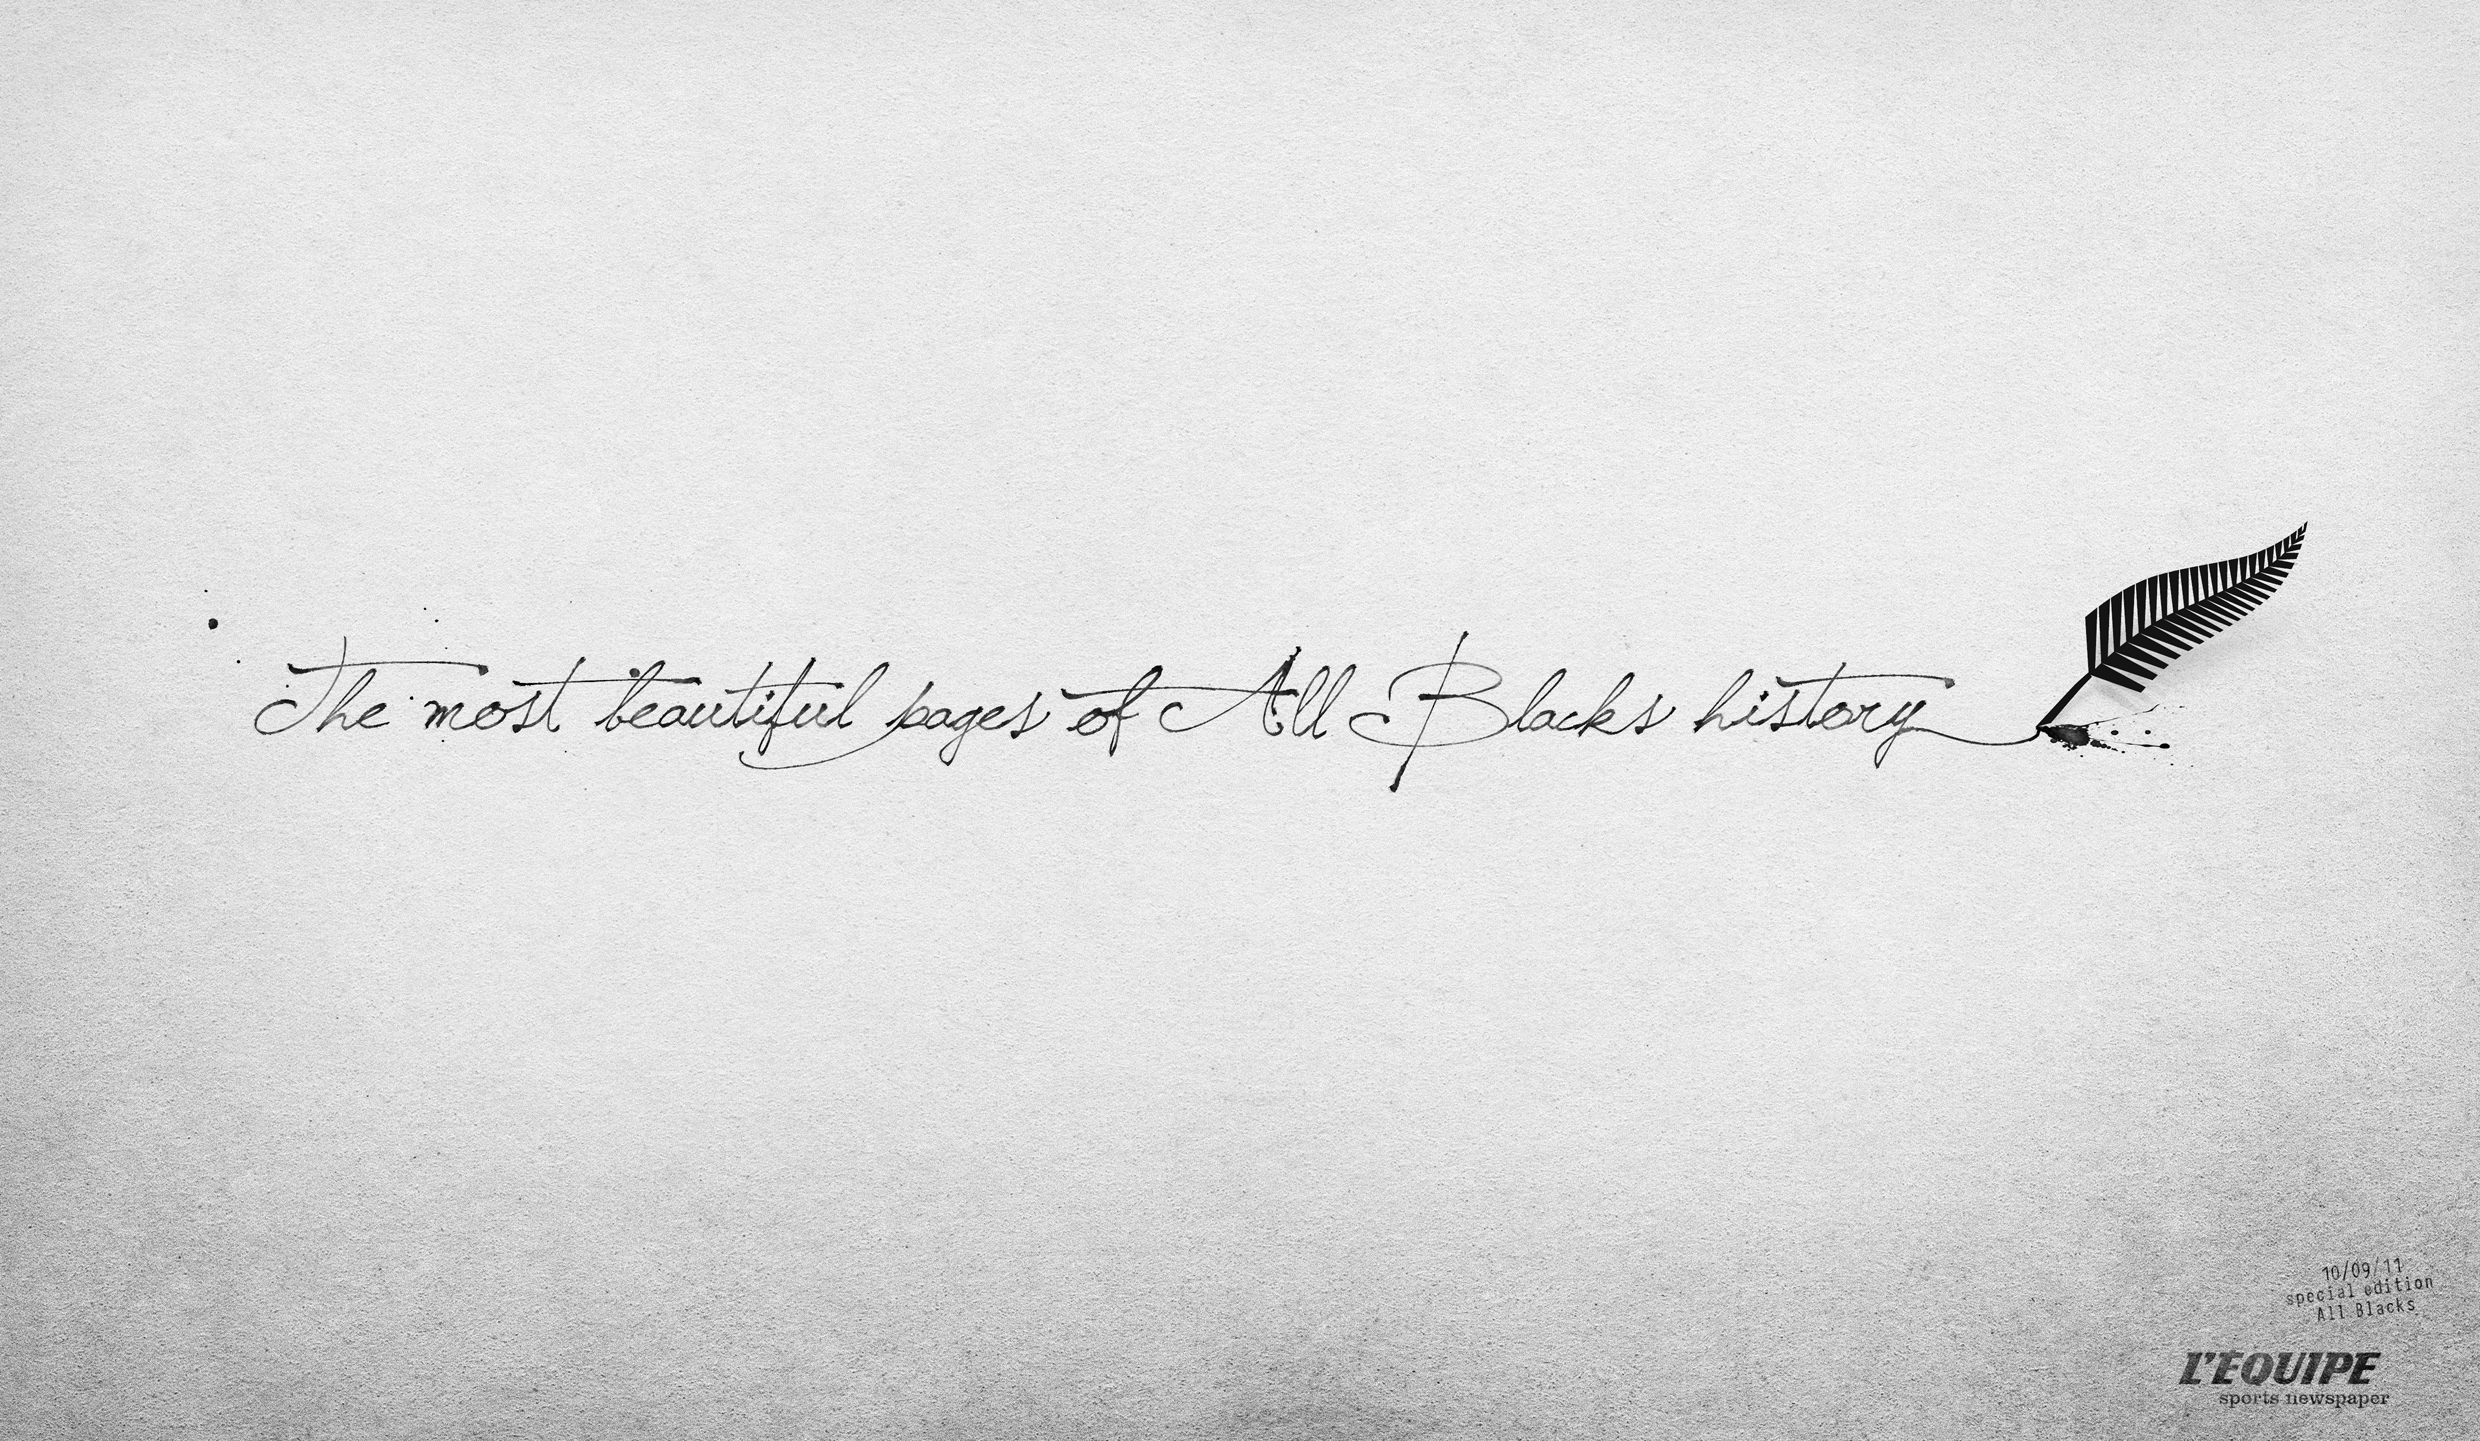 The most beautiful pages of All Blacks history
10/09/11
special edition
All Blacks
L'ÉQUIPE
sports newspaper